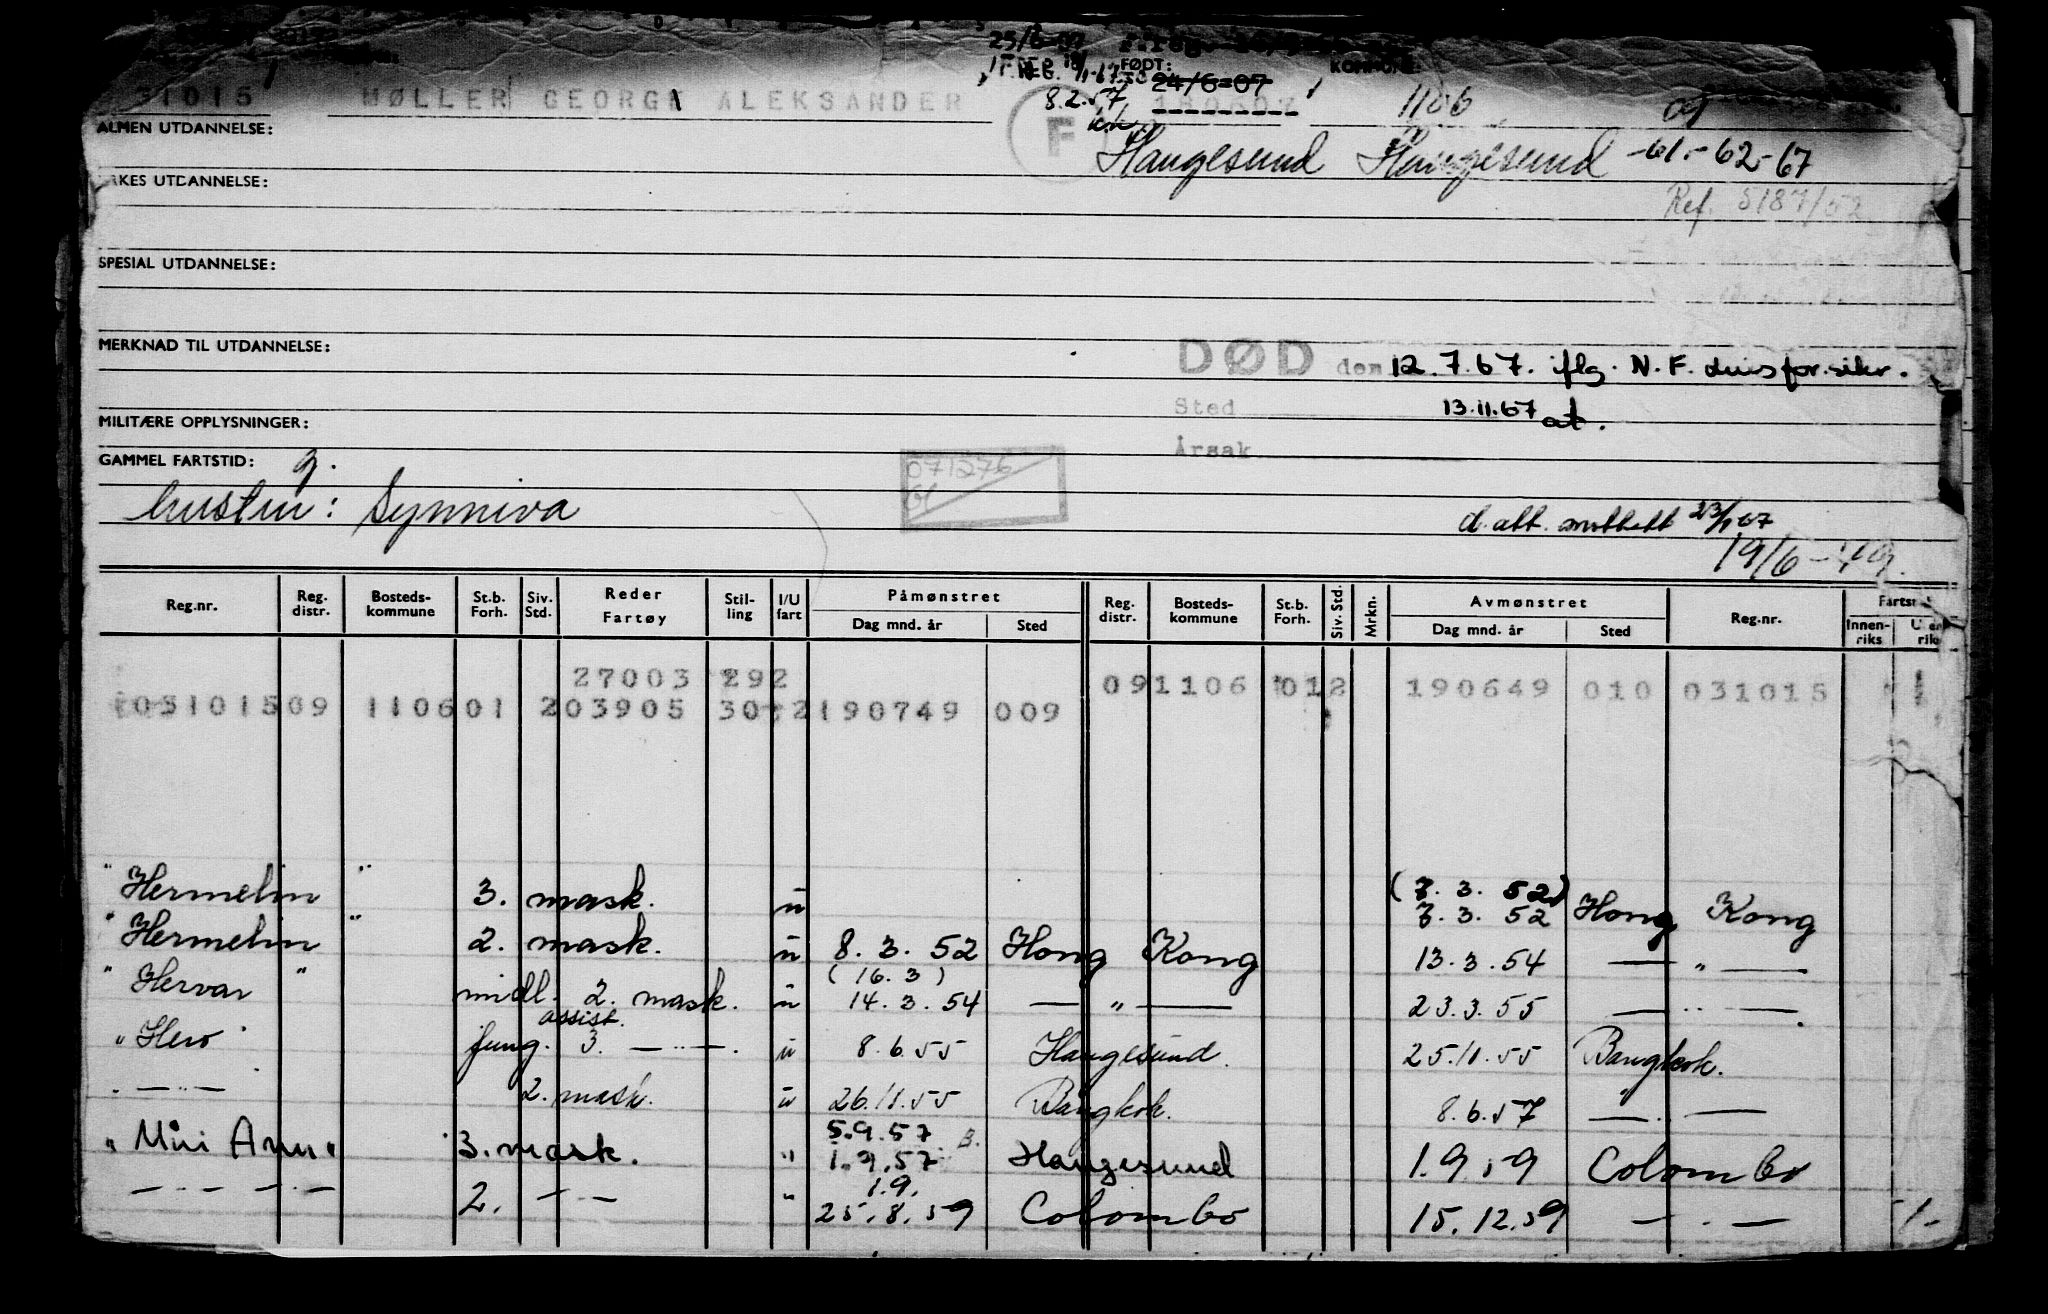 25/6-07
FØDT: KOMMUNE:
24/6-07
31015 MØLLER GEORG ALEKSANDER 8.2.57 180607 1106 09
F
ALMEN UTDANNELSE:
Haugesund Haugesund -61-62-67
YRKES UTDANNELSE:
Ref. 5187/52
SPESIAL UTDANNELSE:
MERKNAD TIL UTDANNELSE:
DØD den 12.7.67. iflg. N.F. livsforsikr.
Sted 13.11.67 at.
MILITÆRE OPPLYSNINGER:
Årsak
GAMMEL FARTSTID: g.
071276
hustru: Synniva
d. att. mottatt 23/1 67
19/6-49.
Reg.nr. Reg. distr. Bosteds- kommune St.b. Forh. Siv. Std. Reder Fartøy Stil- ling I/U fart Påmønstret Dag mnd. år Sted Reg. distr. Bosteds- kommune St.b. Forh. Siv. Std. Mrkn. Avmønstret Dag mnd. år Sted Reg.nr. Fartst Innen- riks Uten riks
27003 292 091106 012 190649 010 031015
031015 09 1106 01 2 03905 30 2 190749 009
" Hermelin " 3. mask. u (7.3.52)
7.3.52 Hong Kong
" Hermelin " 2. mask. u 8.3.52 Hong Kong 13.3.54 — " —
(16.3)
" Hervar " midl. 2. mask. u 14.3.54 — " — 23.3.55 — " —
assist.
" Hero " jung. 3. — " — u 8.6.55 Haugesund. 25.11.55 Bangkok.
— " — 2. mask. u 26.11.55 Bangkok. 8.6.57 — " —
5.9.57 B.
" Miri Ann " 3. mask. " 1.9.57 Haugesund 1.9.59 Colombo
1.9.
— " — " — 2. — " — " 25.8.59 Colombo 15.12.59 — " — -1-